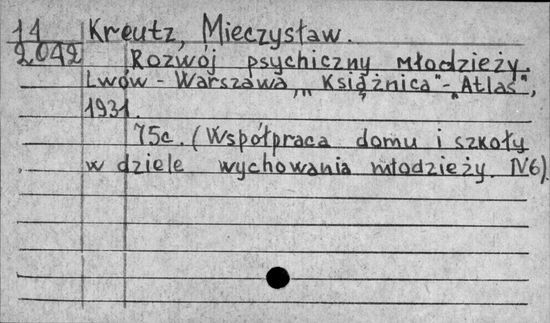 14 Kreutz, Mieczysław.
2042 Rozwój psychiczny młodzieży.
Lwów - Warszawa, „Książnica"-„Atlas",
1931.
75c. (Współpraca domu i szkoły
w dziele wychowania młodzieży. N6).